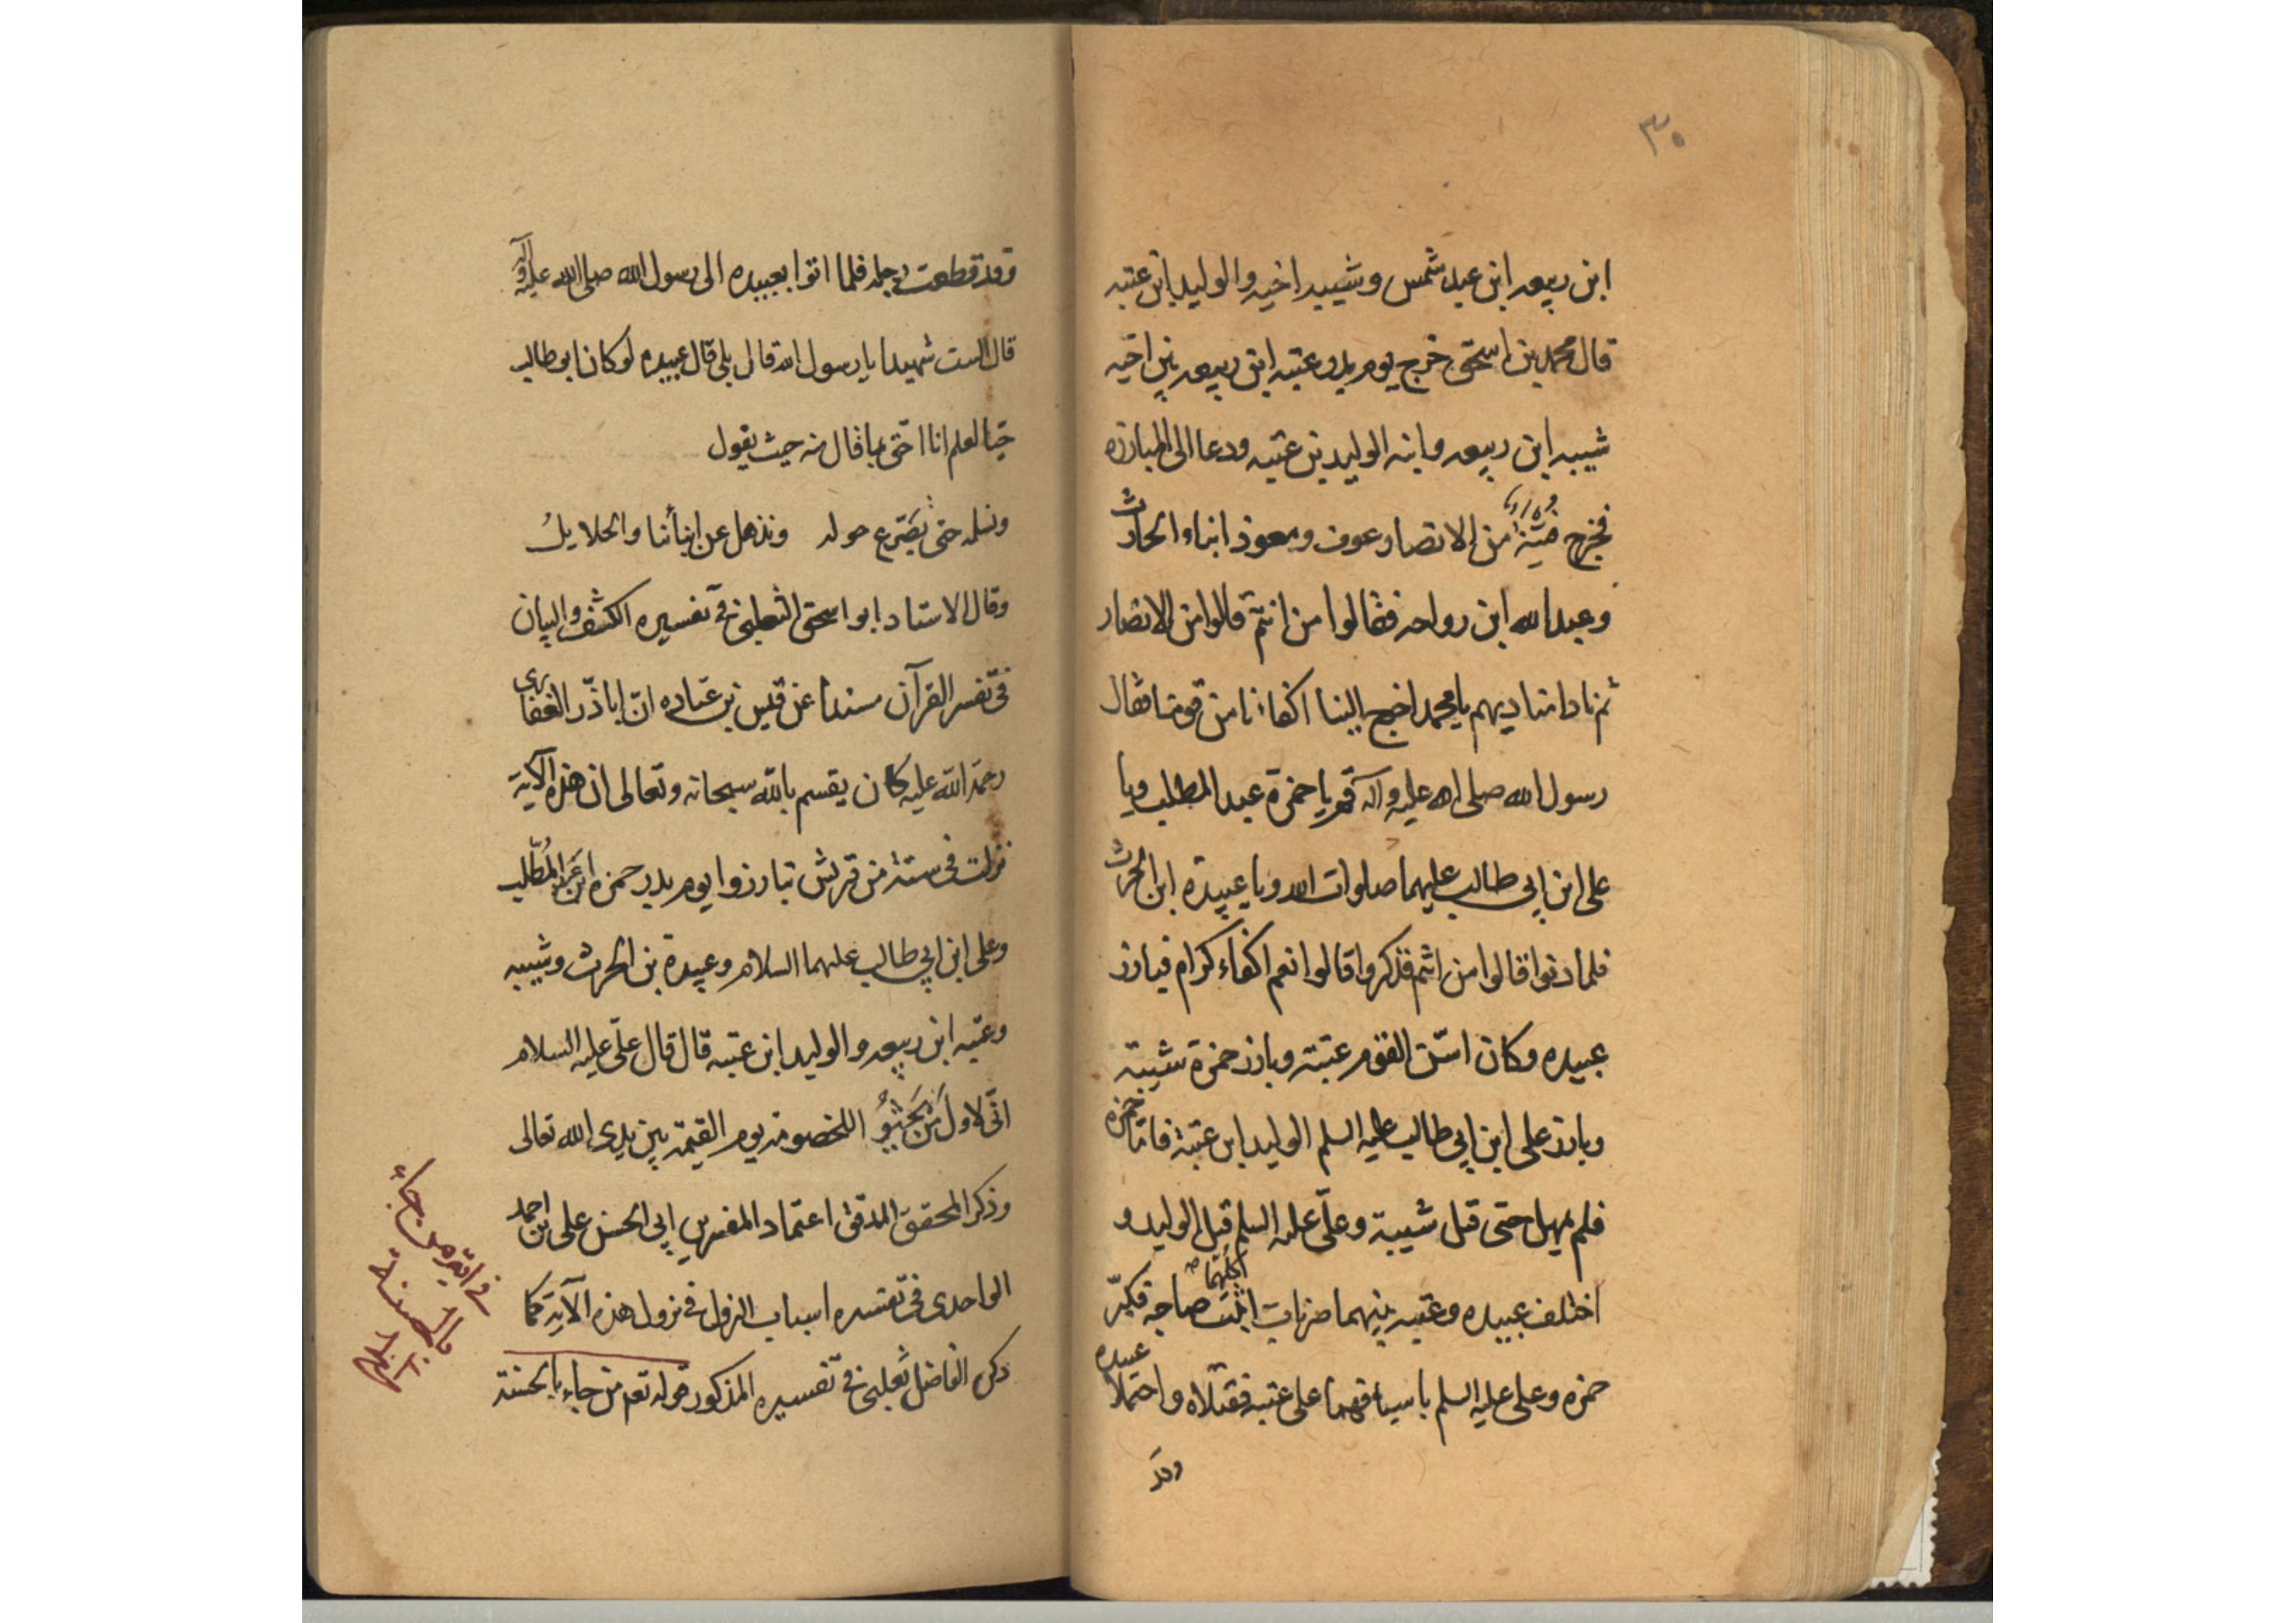 ٣٥
ابن ربيعه ابن عبد شمس وشيبه اخيه والوليد ابن عتبه
قال محمد بن اسحق خرج يوم بدر عتبه ابن ربيعه بين اخيه
شيبه ابن ربيعه وابنه الوليد بن عتبه ودعا الى المبارزه
فخرج فتية من الانصار عوف ومعوذ ابناء الحارث
وعبد الله ابن رواحه فقالوا من انتم قالوا من الانصار
ثم نادا مناديهم يا محمد اخرج الينا اكفاءنا من قومنا فقال
رسول الله صلى الله عليه وآله قم يا حمزة عبد المطلب ويا
على ابن ابي طالب عليهما صلوات الله ويا عبيدة ابن الحرث
فلما دنوا قالوا من انتم فذكروا قالوا نعم اكفاء كرام فبارز
عبيده وكان اسن القوم عتبة وبارز حمزة شيبة
وبارز على ابن ابي طالب عليه السلم الوليد ابن عتبة فاما حمزه
فلم يمهل حتى قتل شيبة وعلّى عليه السلم قتل الوليد و
اختلف عبيده وعتبه بينهما ضربات اثبت كليهما صاحبه فكبّر
حمزه وعلى عليه السلم باسيافهما على عتبه فقتلاه واحتملا عبيده
وقد
وقد قطعت رجله فلما اتوا بعبيده الى رسول الله صلى الله عليه وآله
قال الست شهيدا يا رسول الله قال بلى قال عبيده لو كان ابو طالب
حيّا لعلم انا احّق بما قال منه حيث يقول
ونسلمه حتى نصّرع حوله ونذهل عن ابنأنا والحلايلُ
وقال الاستاد ابو اسحق الثعلبى فى تفسيره الكشف والبيان
فى تفسر القرآن مسندا عن قيس بن عباده انّ ابا ذّر الغفارى
رحمة الله عليه كان يقسم بالله سبحانه وتعالى ان هذه الآية
نزلت فى ستة من قريش تبارزوا يوم بدر حمزه ابن عبد المُطّلب
وعلى ابن ابي طالب عليهما السلام وعبيدة بن الحرث وشيبه
وعتبه ابن ربيعه والوليد ابن عتبه قال قال علّى عليه السلام
انّى لاول مَن يَجثُو اللخصومة يوم القيمة بين يدى الله تعالى
وذكر المحقق المدقق اعتماد المفسرين ابى الحسن على بن احمد
الواحدى فى تفسره اسباب النزول فى نزول هذه الآية كما
ذكره الفاضل ثعلبى فى تفسيره المذكور قوله تعم من جاء بالحسنة
فى اية من جاء
بالحسنة